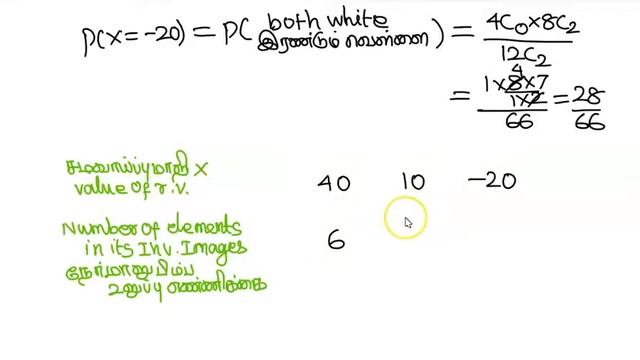 P(X = -20) = P( both white இரண்டும் வெள்ளை ) = 4C₀ × 8C₂ / 12C₂
= 1 × 8 × 7 / 1 × 2 / 66 = 28 / 66
4
சமவாய்ப்பு மாறி X
value of r.v.
40 10 -20
Number of elements
in its Inv. Images
6
நேர்மாறு பிம்ப
உறுப்பு எண்ணிக்கை